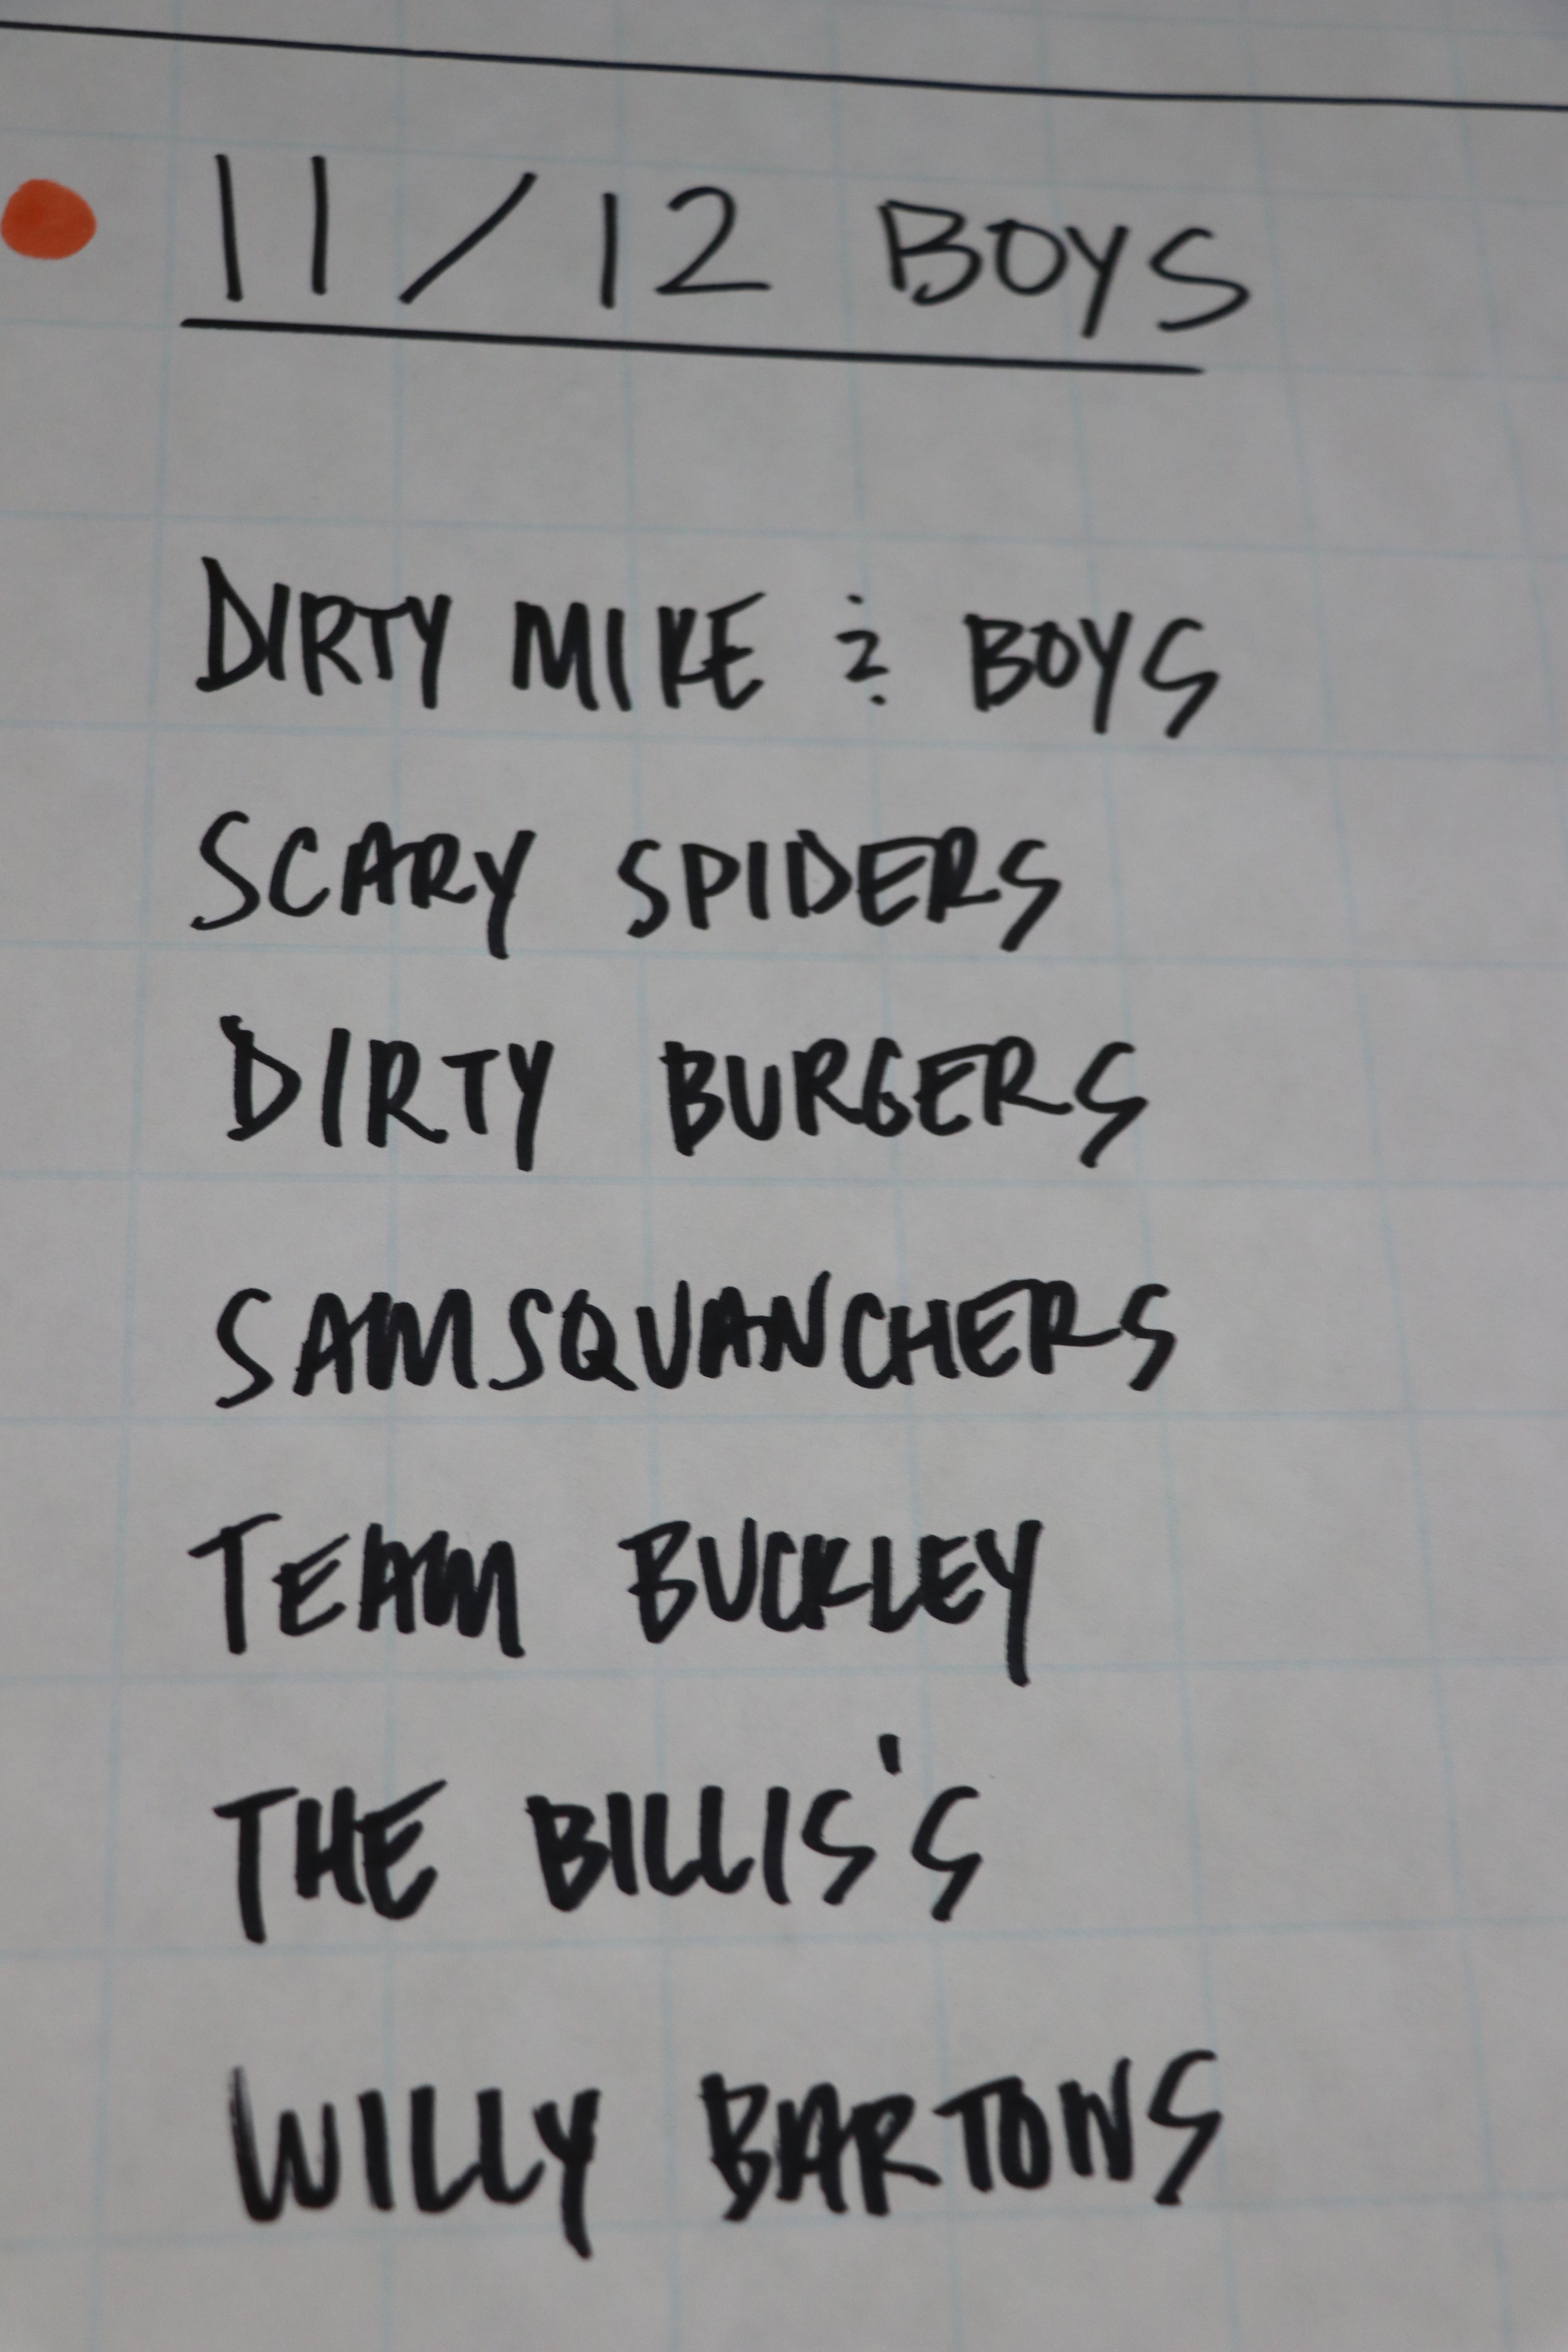 11/12 BOYS
DIRTY MIKE & BOYS
SCARY SPIDERS
DIRTY BURGERS
SAMSQUANCHERS
TEAM BUCKLEY
THE BILLIS'S
WILLY BARTONS